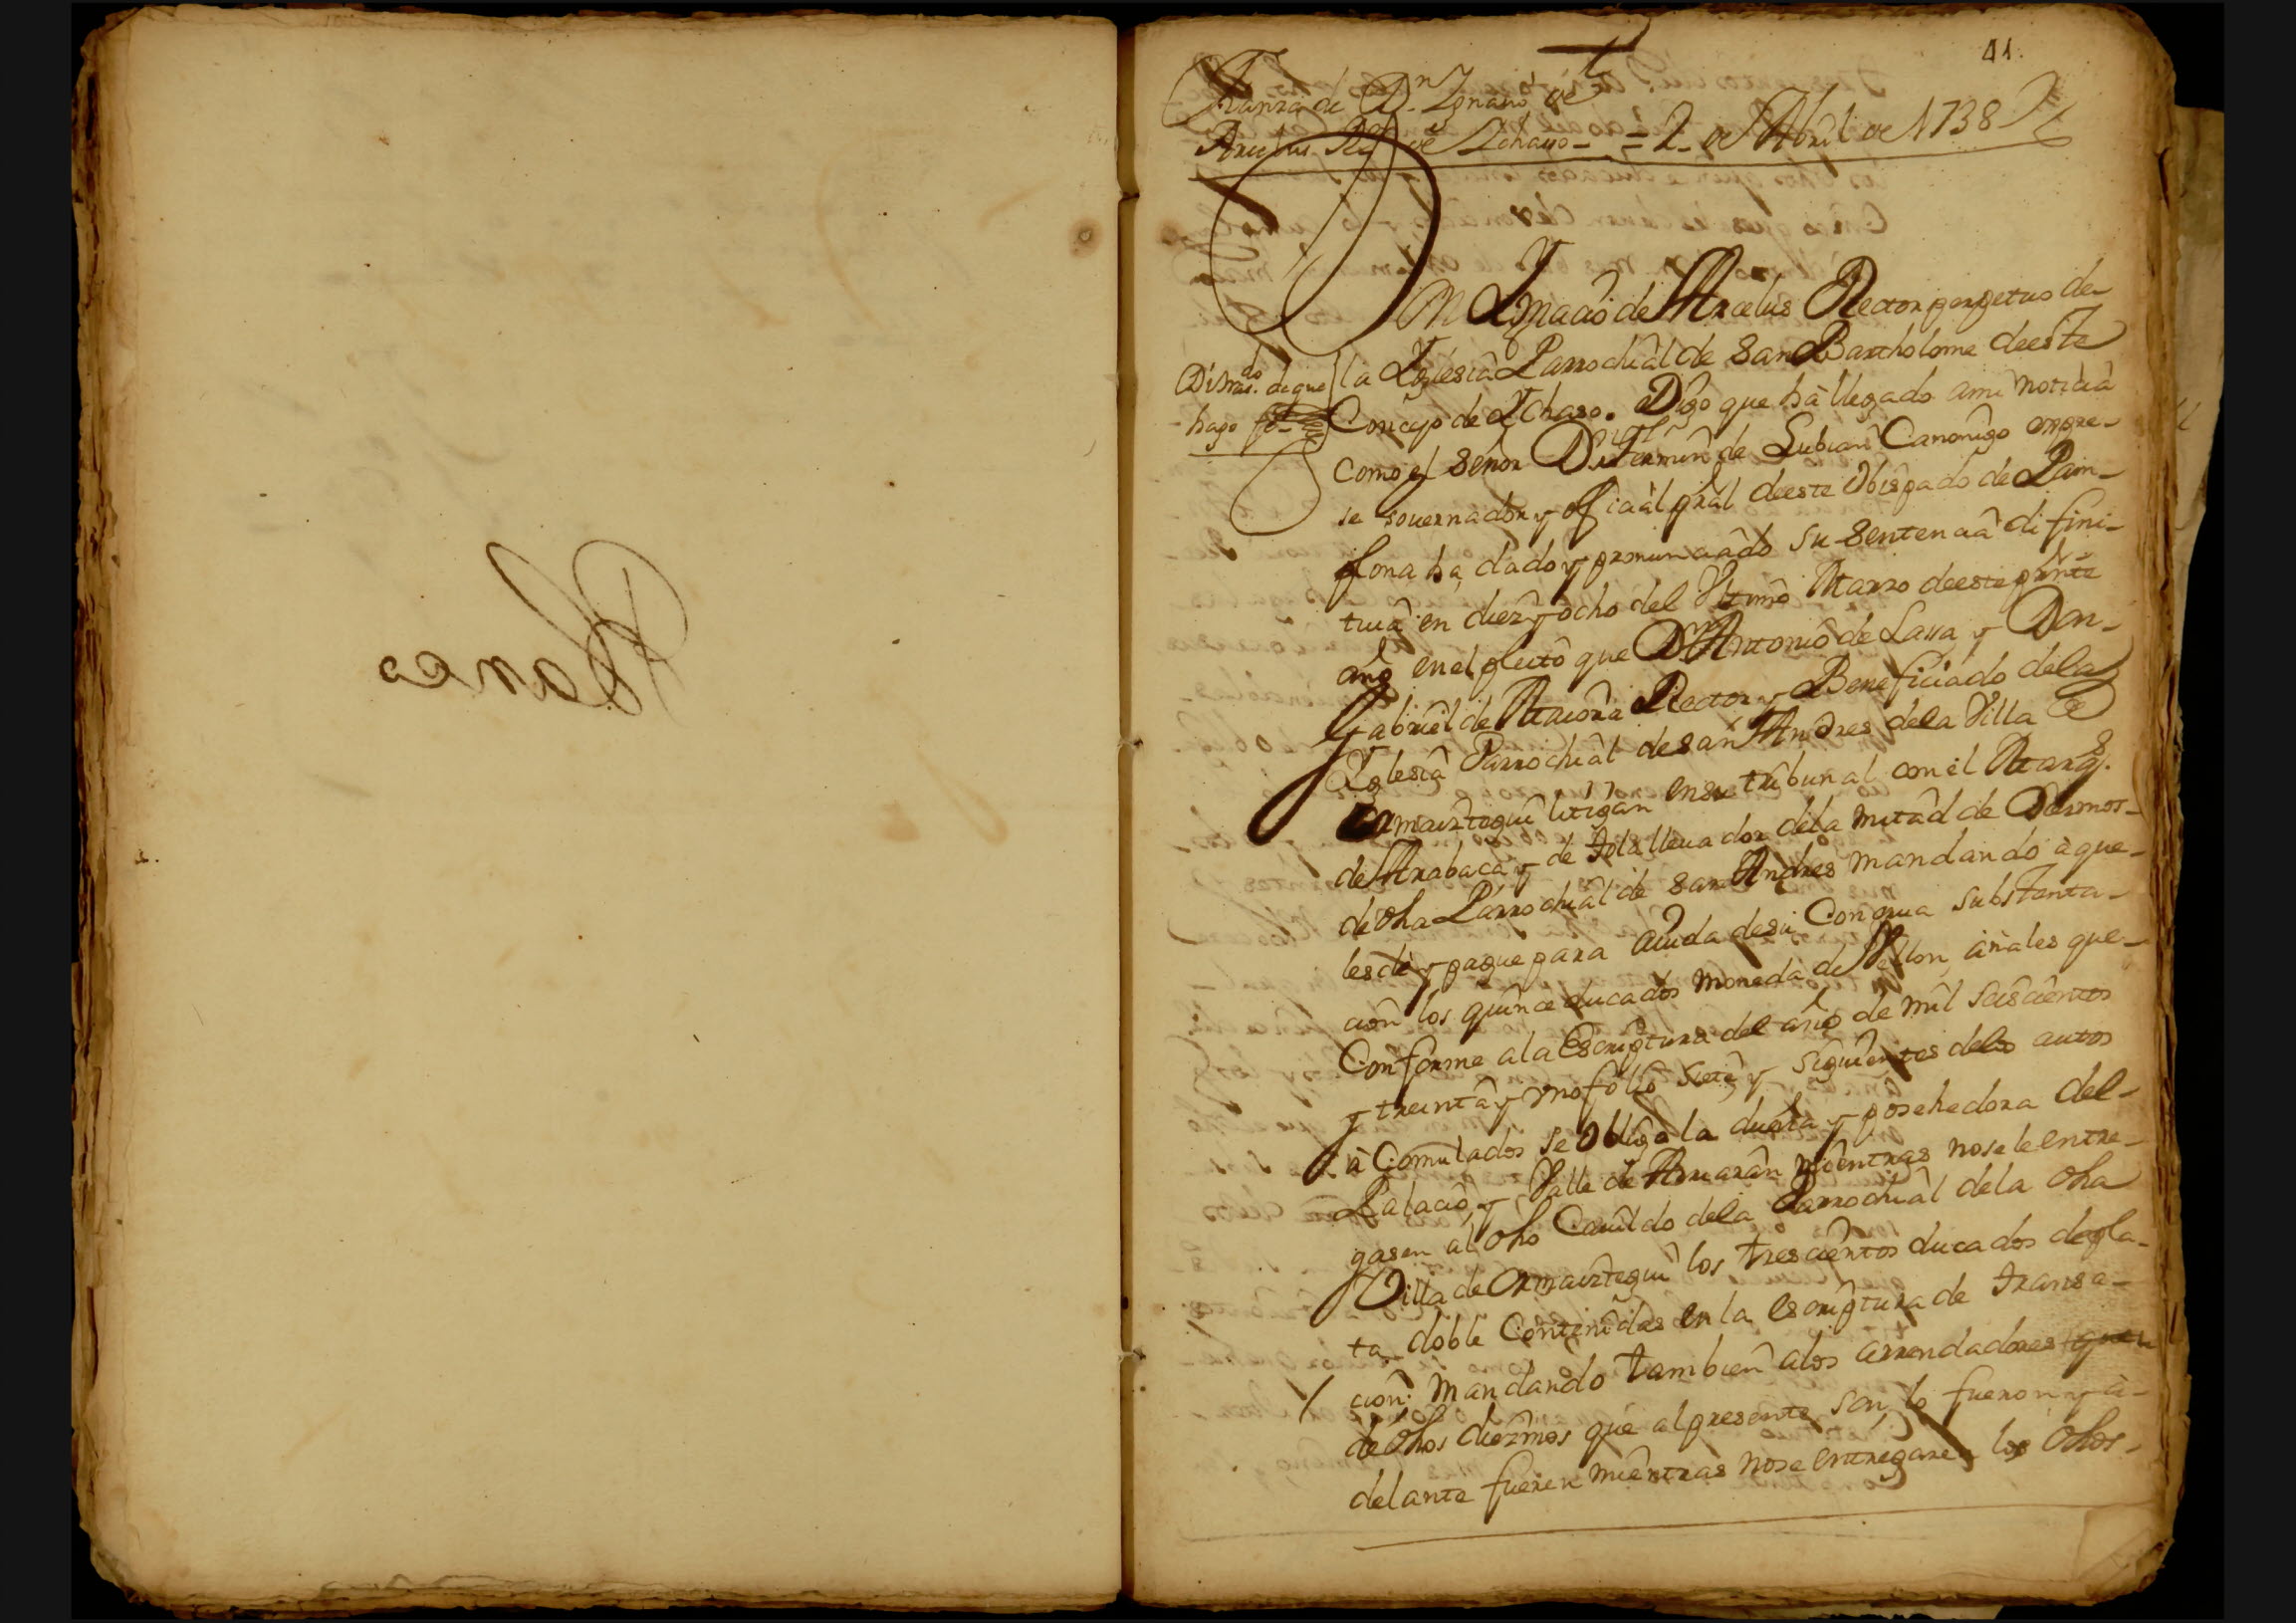 41.
Fianza de Dn. Ignacio de
Arcelus Rr. de Ichaso = 2 de Abril de 1738
Dn Ignacio de Arcelus Rector perpetuo de
la Yglesia Parrochial de San Bartholome de este
Concejo de Ychaso. Digo que ha llegado ami noticia
como el Señor Dn Fermin de Lubian Canonigo enpre-
se Governador y oficial gral de este Obispado de Pam-
plona ha dado y pronunciado su Sentencia difini-
tiua en diez y ocho del Vltimo Marzo de este pnte
año en el pleito que Dn Antonio de Lasa y Don
Gabriel de Maiora Rector y Beneficiado de la
Yglesia Parrochial de San Andres de la Villa de
Ormaiztegui litigan en su tribunal con el Marqs.
de Narabaca y de Tola lleuador de la mitad de Diezmos
de dha Parrochial de San Andres mandando à que
les dè y pague para aiuda de su Congrua substenta-
cion los quince ducados moneda de Vellon, añales que
Conforme a la Escriptura del año de mil seiscientos
y treinta y vno folio siete y siguientes delos autos
à Comulados se obligo la dueña y posehedora del
Palacio, y Valle de Arriaran mientras nose le entre-
gasen al dho Cauildo dela Parrochial dela dha
Villa de Ormaiztegui los trescientos ducados de pla-
ta doble Contenidos en la escriptura de transa-
cion: Mandando tambien alos arrendadores
de dhos diezmos que al presente son, lo fueron y à
delante fueren mientras nose entregaren los dhos
Di trasdo. de que
hago fe